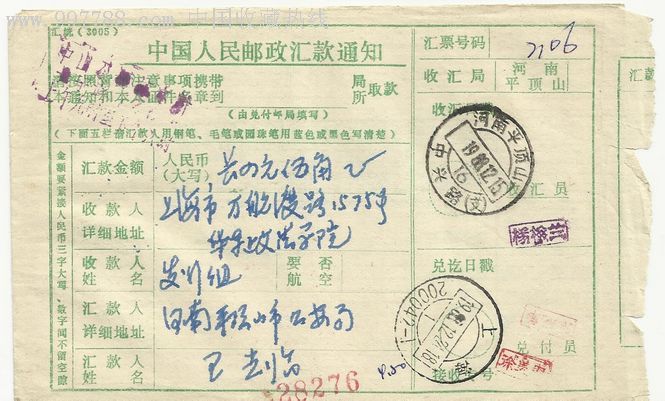 www.997788.com 中国收藏热线
汇统(3005)
中国人民邮政汇款通知
请按照背面注意事项携带
本通知和本人证件名章到
局
所
取款
(由兑付邮局填写)
(下面五栏请汇款人用钢笔、毛笔或圆珠笔用蓝色或黑色写清楚)
汇款金额
人民币
(大写)
元伍角
收款人
详细地址
上海市万航渡路1575号
华东政法学院
收款人
姓名
发行组
要否
航空
汇款人
详细地址
河南平顶山市公安局
汇款人
姓名
王
金额要紧接人民币三字大写、数字间不留空隙
28276
4.50
汇票号码
2106
收汇局
河南
平顶山
收汇
收汇员
河南平顶山
1988.12.15
16
中兴路(支)
兑讫日戳
上海
200042-1
兑付员
接收
号
汇款